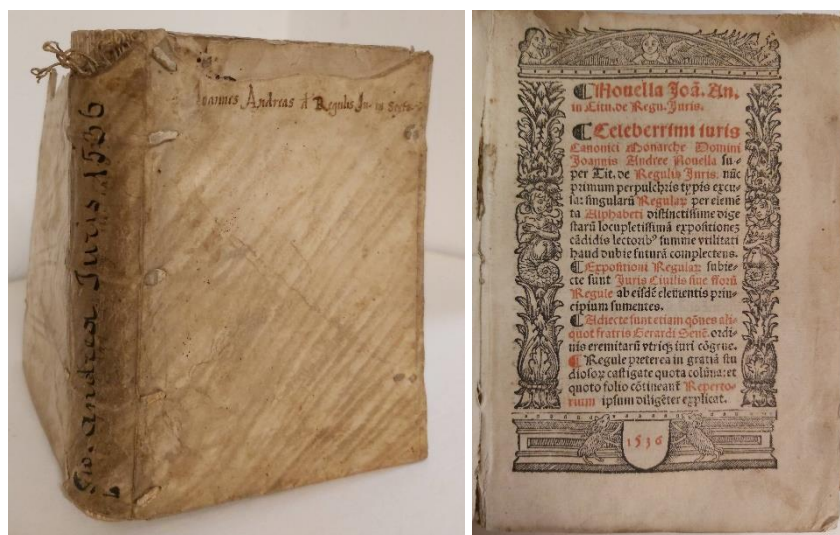 Joannes Andreas d Regulis Juris Sexti
Gio. Andrea Juris 1536
Nouella Joã. An.
in Titu. de Regu. Juris.
Celeberrimi iuris
Canonici Monarche Domini
Joannis Andree Nouella su-
per Tit. de Regulis Juris. nũc
primum perpulchris typis excu-
sa: singularũ Regulaꝝ per elemẽ
ta Alphabeti distinctissime dige
starũ locupletissimã expositionez
cãdidis lectoribꝰ summe vtilitati
haud dubie futurã complectens.
Expositioni Regulaꝝ subie-
cte sunt Juris Ciuilis siue fforũ
Regule ab eisdẽ elementis prin-
cipium sumentes.
Adiecte sunt etiam qõnes ali-
quot fratris Gerardi Senẽ. ordi-
nis eremitarũ vtriqꝫ iuri cõgrue.
Regule preterea in gratiã stu
diosoꝝ castigate quota colũna: et
quoto folio cõtineant Reperto-
rium ipsum diligẽter explicat.
1536